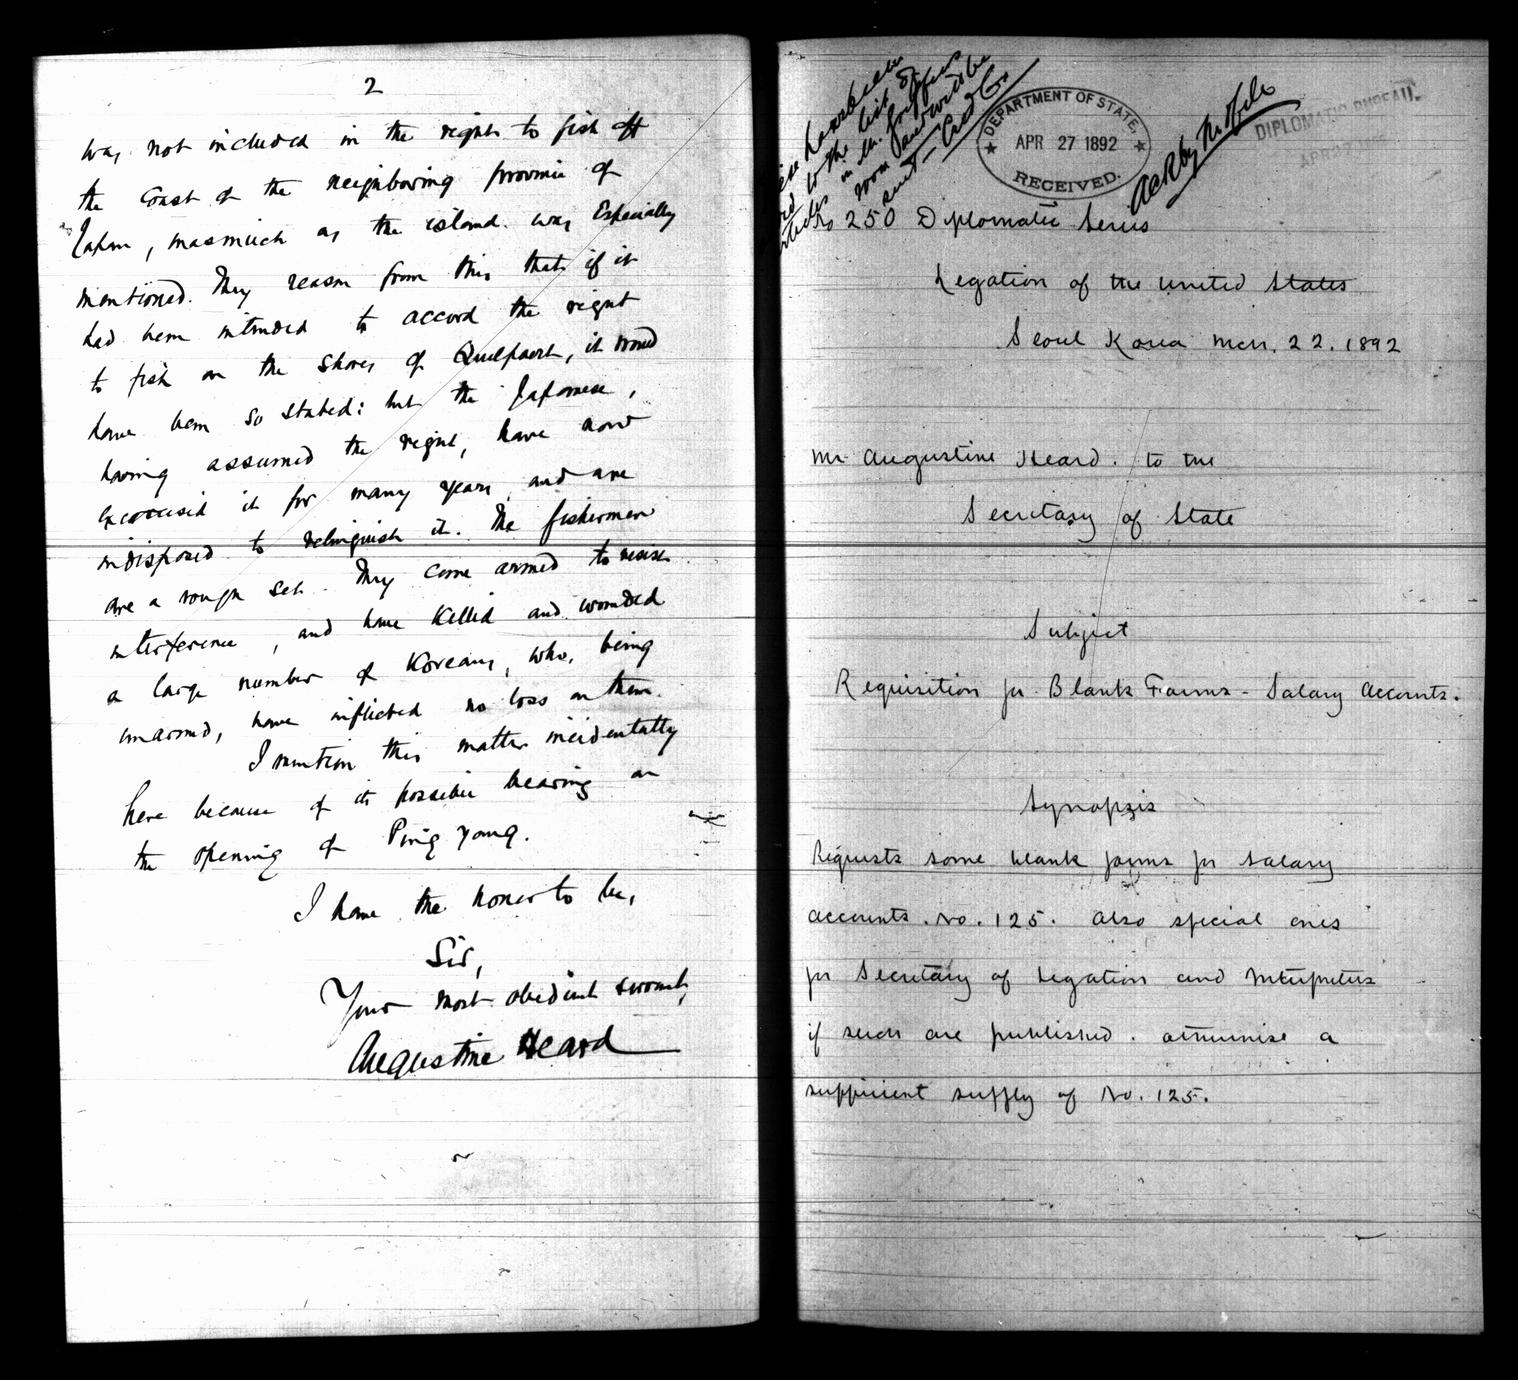 2
was not included in the right to fish off
the coast of the neighboring province of
Japan, inasmuch as the island was Especially
mentioned. They reason from this that if it
had been intended to accord the right
to fish on the shores of Quelpaert, it would
have been so stated: but the Japanese,
having assumed the right, have now
exercised it for many years and are
indisposed to relinquish it. The fishermen
are a rough set. They come armed to resist
interference, and have killed and wounded
a large number of Koreans, who, being
unarmed, have inflicted no loss on them.
I mention this matter incidentally
here because of its possible bearing on
the opening of Ping Yang.
I have the honor to be,
Sir,
Your most obedient servant,
Augustine Heard
to the list of
room
sent
DEPARTMENT OF STATE,
APR 27 1892
RECEIVED.
Ack by
DIPLOMATIC BUREAU.
APR 27 1892
No 250 Diplomatic Series
Legation of the United States
Seoul Korea Mch. 22. 1892
Mr Augustine Heard. to the
Secretary of State
Subject
Requisition for Blank Forms - Salary Accounts.
Synopsis
Requests some blank forms for salary
accounts. No. 125. Also special ones
for Secretary of Legation and Interpreter
if such are published. otherwise a
sufficient supply of No. 125.